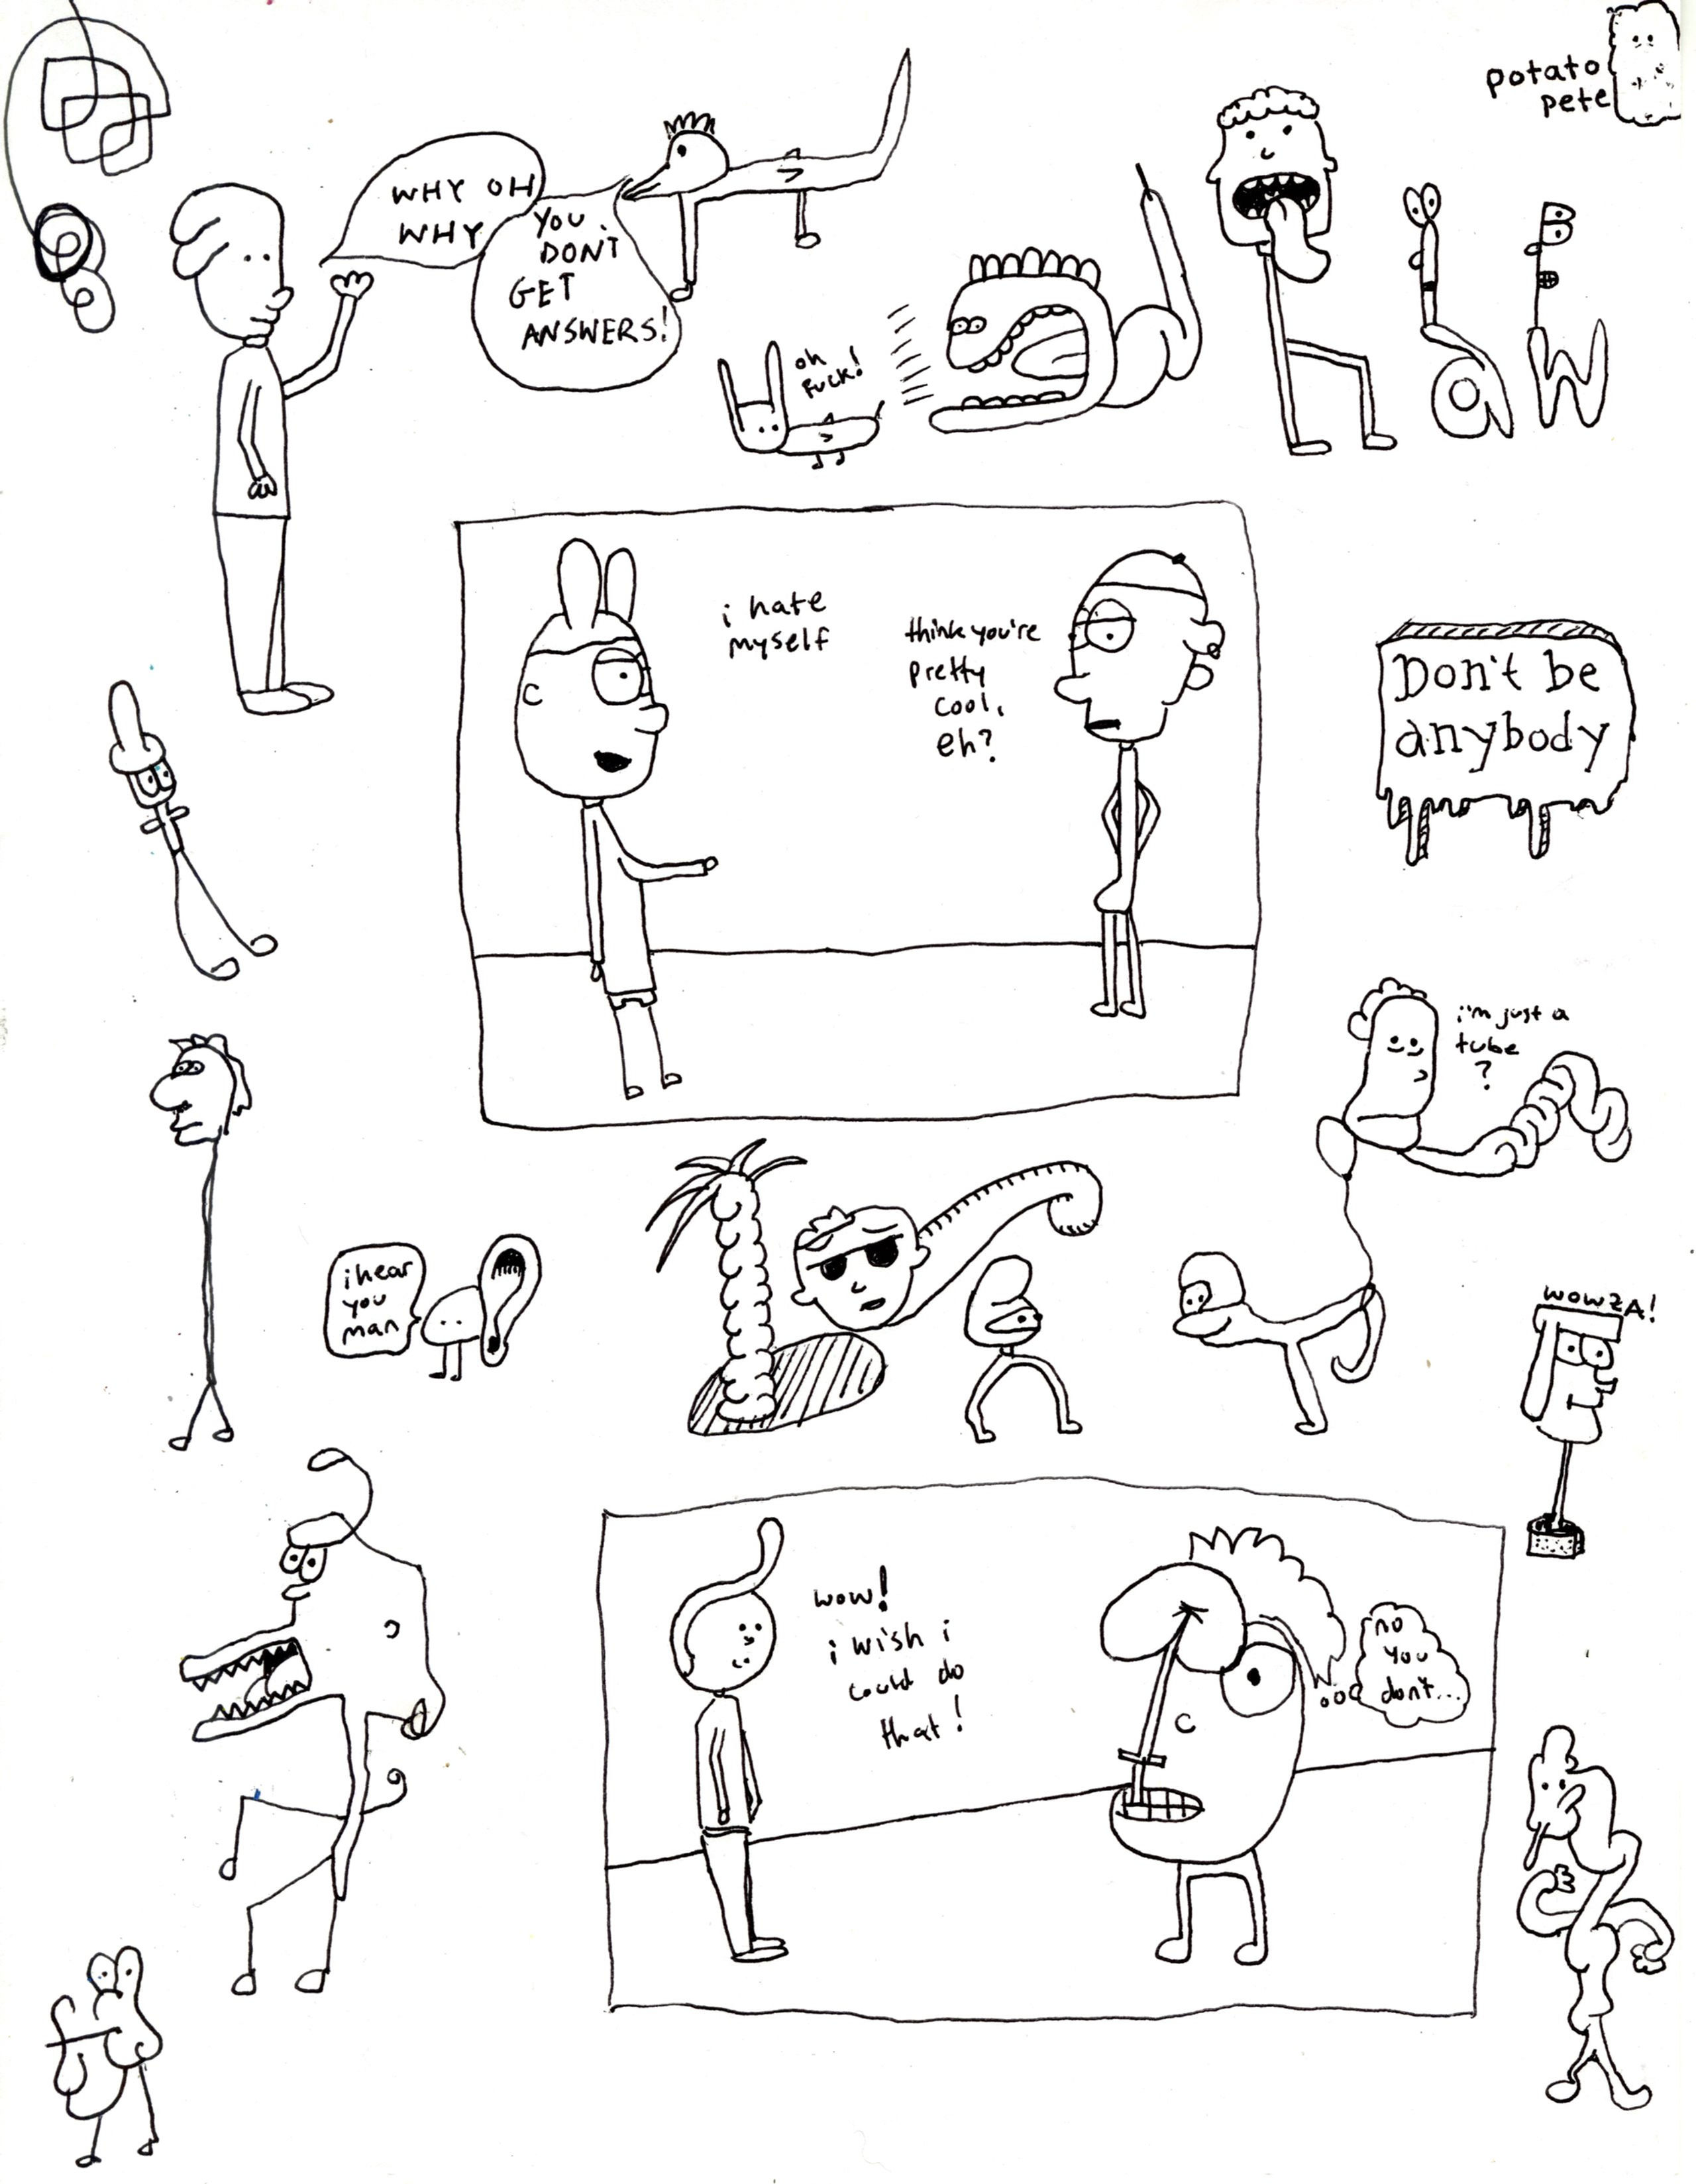 potato
pete
WHY OH
WHY
YOU
DON'T
GET
ANSWERS!
oh
FUCK!
i hate
myself
think you're
pretty
cool,
eh?
Don't be
anybody
i'm just a
tube
?
i hear
you
man
WOWZA!
wow!
i wish i
could do
that!
no
you
don't...